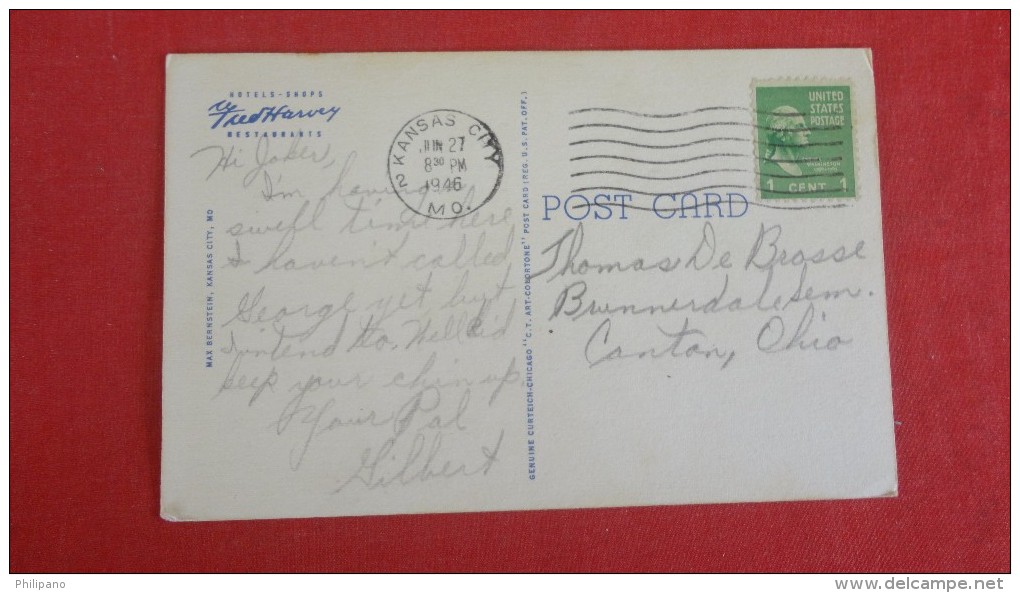 HOTELS-SHOPS
Fred Harvey
RESTAURANTS
Hi Joker,
I'm having a
swell time here
I haven't called
George yet but
intend to. Well kid
keep your chin up.
Your Pal
Gilbert
MAX BERNSTEIN, KANSAS CITY, MO
KANSAS CITY 2
JUN 27
8 30 PM
1946
MO.
GENUINE CURTEICH-CHICAGO "C.T. ART-COLORTONE" POST CARD (REG. U.S. PAT. OFF.)
UNITED
STATES
POSTAGE
WASHINGTON
1 CENT 1
POST CARD
Thomas De Brosse
Brunnerdale Sem.
Canton, Ohio
Philipano
www.delcampe.net